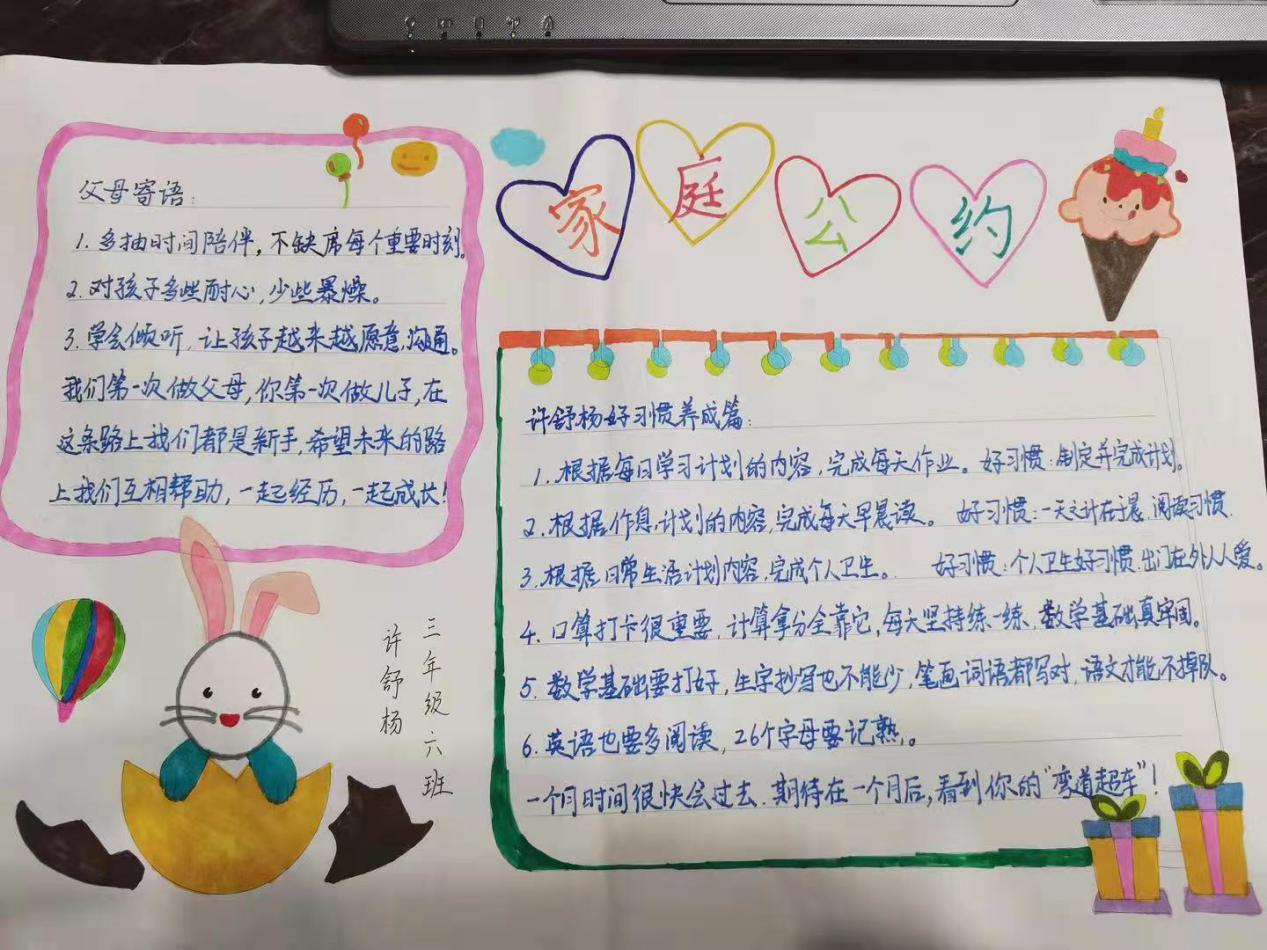 家庭公约
父母寄语：
1. 多抽时间陪伴，不缺席每个重要时刻。
2. 对孩子多些耐心，少些暴燥。
3. 学会倾听，让孩子越来越愿意沟通。
我们第一次做父母，你第一次做儿子，在
这条路上我们都是新手，希望未来的路
上我们互相帮助，一起经历，一起成长！
三年级六班
许舒杨
许舒杨好习惯养成篇：
1. 根据每日学习计划的内容，完成每天作业。好习惯：制定并完成计划。
2. 根据作息计划的内容，完成每天早晨读。 好习惯：一天之计在于晨，阅读习惯.
3. 根据日常生活计划内容，完成个人卫生。 好习惯：个人卫生好习惯，出门在外人人爱。
4. 口算打卡很重要，计算拿分全靠它，每天坚持练一练，数学基础真牢固。
5. 数学基础要打好，生字抄写也不能少，笔画词语都写对，语文才能不掉队。
6. 英语也要多阅读，26个字母要记熟。
一个月时间很快会过去，期待在一个月后，看到你的“弯道超车”！